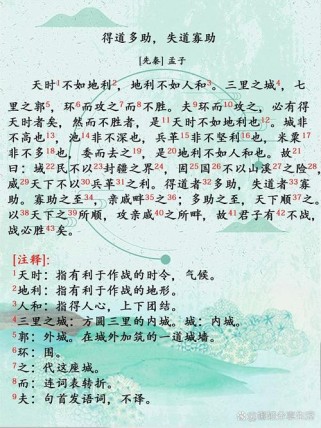 得道多助，失道寡助
[先秦] 孟子
天时1不如地利2，地利不如人和3。三里之城4，七
里之郭5，环6而攻之7而8不胜。夫9环而10攻之，必有得
天时者矣，然而不胜者，是11天时不如地利也12。城非
不高也13，池14非不深也，兵革15非不坚利16也，米粟17
非不多18也，委而去之19，是20地利不如人和也。故21
曰：域22民不以23封疆之界24，固25国26不以山溪27之险28，
威29天下不以30兵革31之利。得道者32多助，失道者33寡
助。寡助之至34，亲戚畔35之36；多助之至，天下顺37之。
以38天下之39所顺，攻亲戚40之所畔，故41君子有42不战，
战必胜43矣。
[注释]:
1天时：指有利于作战的时令，气候。
2地利：指有利于作战的地形。
3人和：指得人心，上下团结。
4三里之城：方圆三里的内城。城：内城。
5郭：外城。在城外加筑的一道城墙。
6环：围。
7之：代这座城。
8而：连词表转折。
9夫：句首发语词，不译。